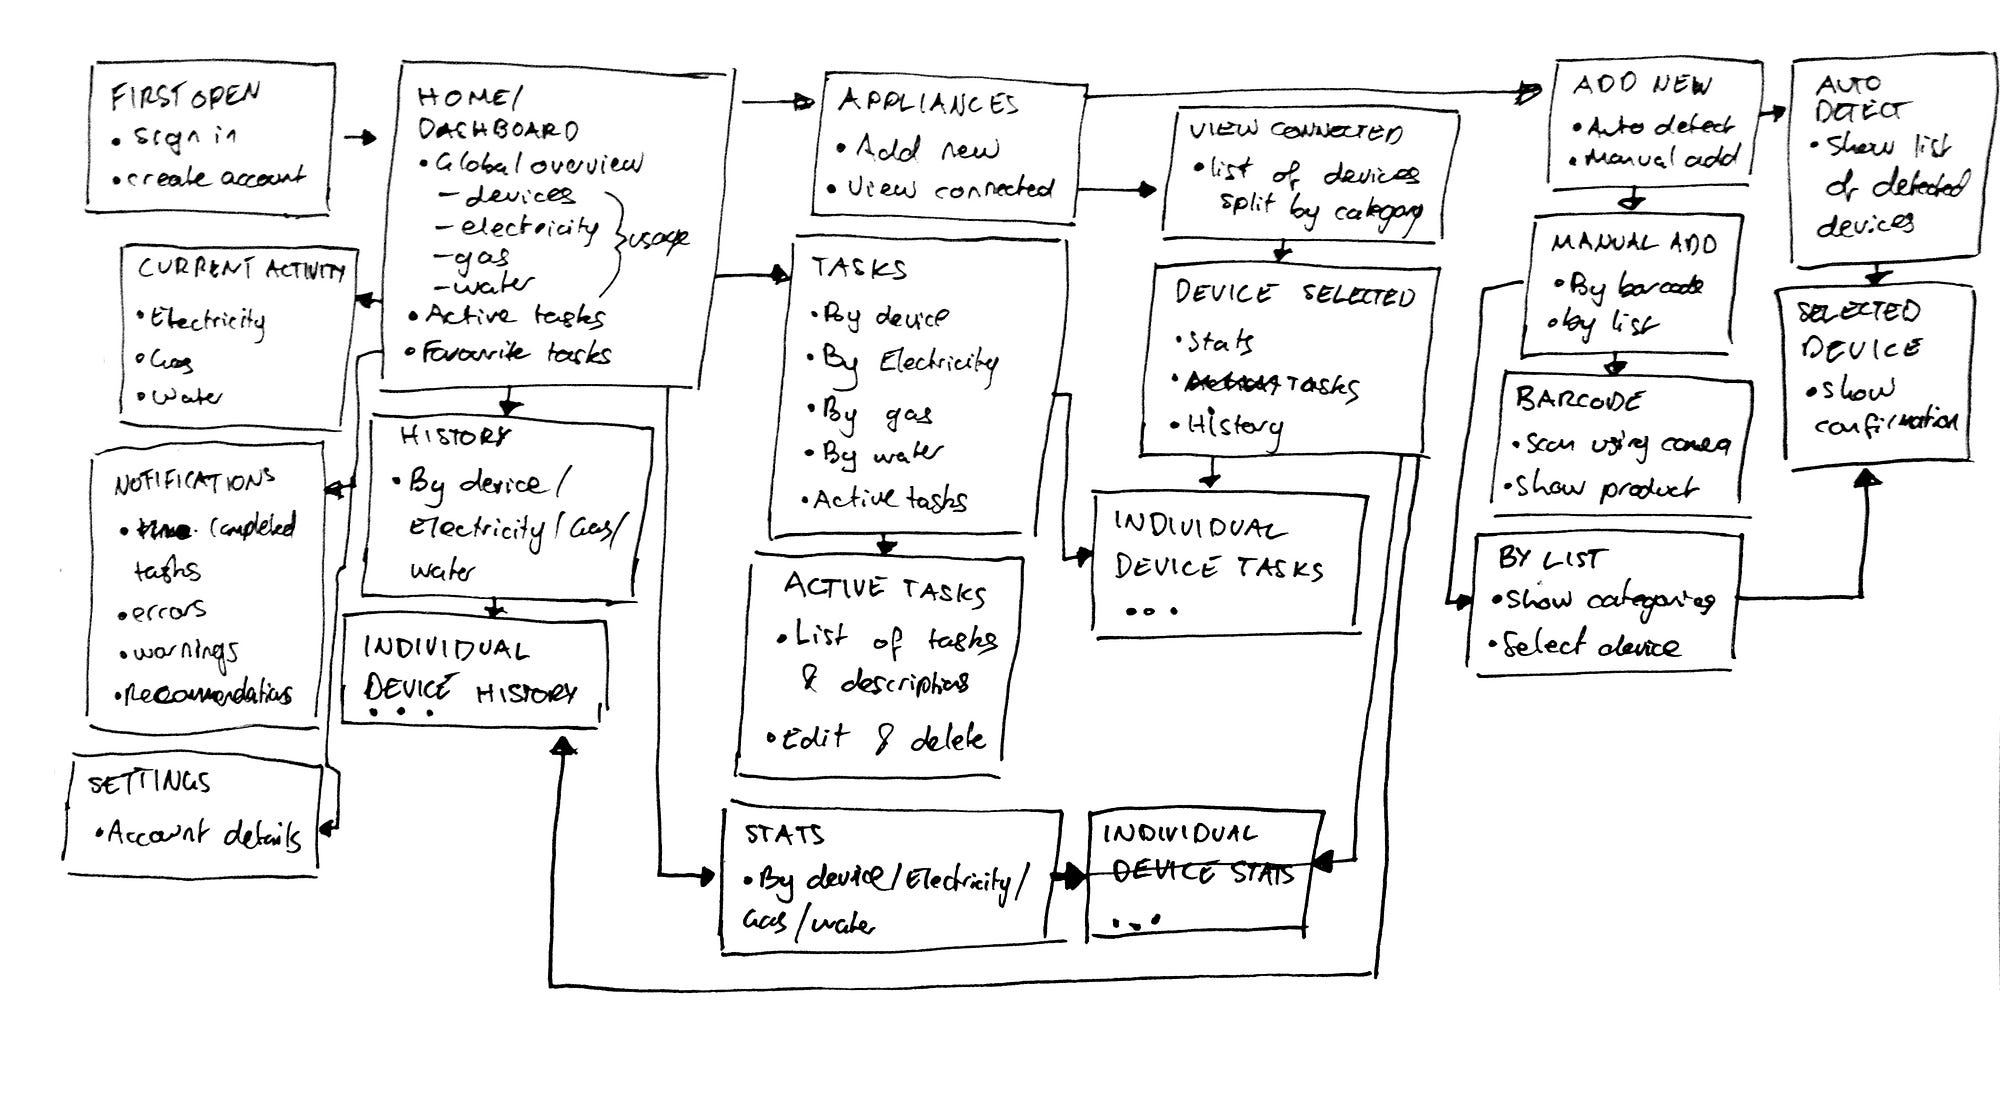 FIRST OPEN
• Sign in
• create account
HOME/
DASHBOARD
• Global overview
- devices
- electricity
- gas
- water
usage
• Active tasks
• Favourite tasks
CURRENT ACTIVITY
• Electricity
• Gas
• Water
NOTIFICATIONS
• Completed
tasks
• errors
• warnings
• Recomendations
SETTINGS
• Account details
HISTORY
• By device /
Electricity / Gas /
water
INDIVIDUAL
DEVICE HISTORY
• • •
APPLIANCES
• Add new
• View connected
TASKS
• By device
• By Electricity
• By gas
• By water
• Active tasks
ACTIVE TASKS
• List of tasks
& descriptions
• Edit & delete
STATS
• By device / Electricity /
Gas / water
INDIVIDUAL
DEVICE STATS
• • •
VIEW CONNECTED
• list of devices
split by category
DEVICE SELECTED
• Stats
• TASKS
• History
INDIVIDUAL
DEVICE TASKS
• • •
ADD NEW
• Auto detect
• Manual add
MANUAL ADD
• By barcode
• by list
BARCODE
• Scan using camera
• Show product
BY LIST
• Show categories
• Select device
AUTO
DETECT
• Show list
of detected
devices
SELECTED
DEVICE
• Show
confirmation